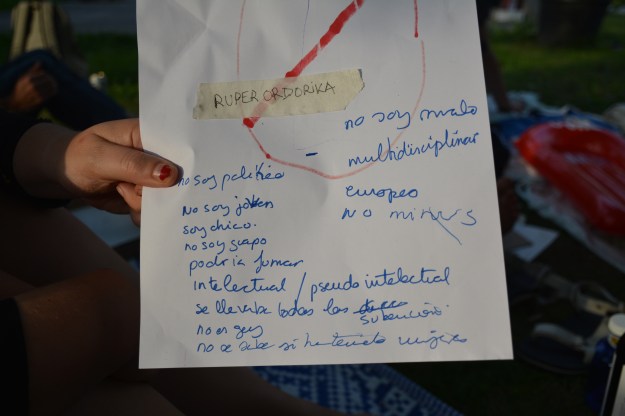 RUPER ORDORIKA
no soy malo
multidisciplinar
europeo
no
no soy político
no soy joven
soy chico.
no soy guapo
podría fumar
intelectual / pseudo intelectual
se llevaba todas las
subvenciones
no es gay
no se sabe si ha tenido mujeres